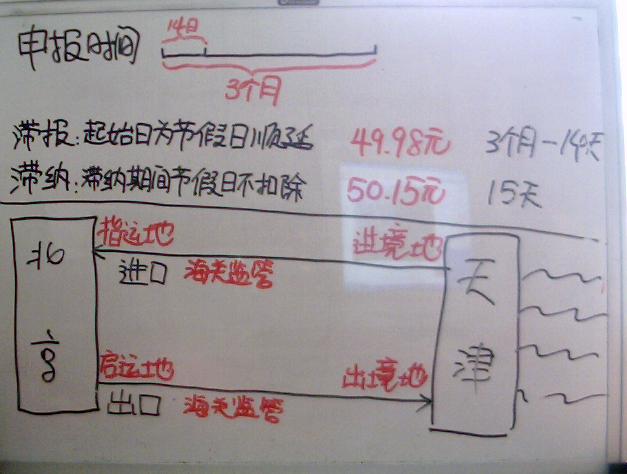 申报时间 14日
3个月
滞报:起始日为节假日顺延 49.98元 3个月-14天
滞纳:滞纳期间节假日不扣除 50.15元 15天
指运地 进境地
北京 进口 海关监管 天津
启运地 出境地
出口 海关监管